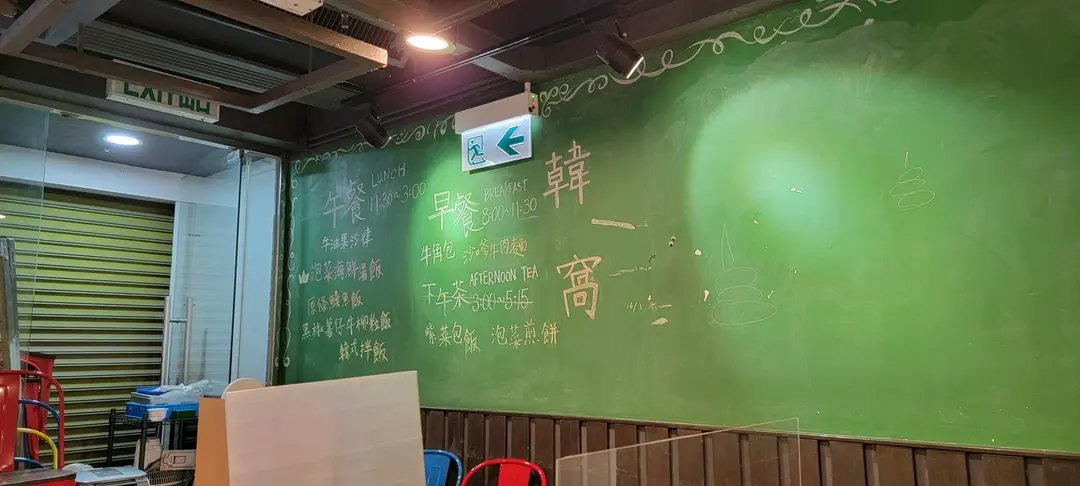 EXIT 出口
午餐 LUNCH
11:30~3:00
牛油果沙律
泡菜海鮮湯飯
原條鰻魚飯
黑椒薯仔牛柳粒飯
韓式拌飯
早餐 BREAKFAST
8:00~11:30
牛角包 沙嗲牛肉麵
下午茶 AFTERNOON TEA
3:00~5:15
紫菜包飯 泡菜煎餅
韓一窩